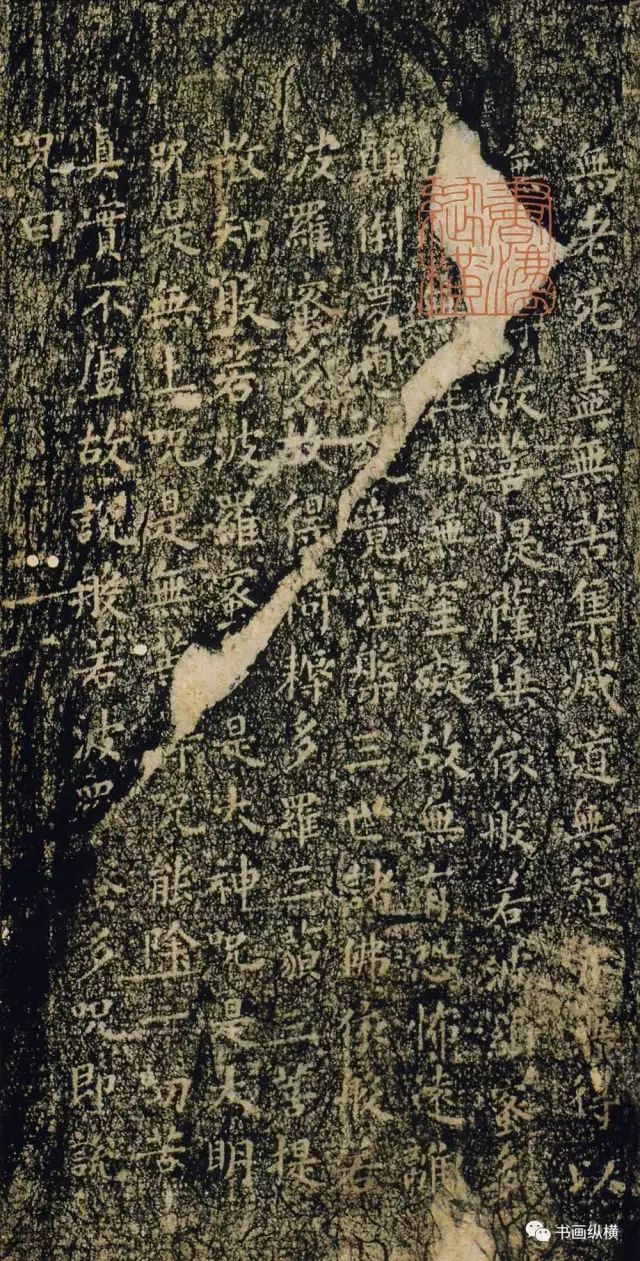 無老死盡無苦集滅道無智得以
無故菩提薩埵依般若波羅蜜多
無罣礙故無有恐怖遠離
顛倒夢想竟涅槃三世諸佛依般若
波羅蜜多故得阿耨多羅三藐三菩提
故知般若波羅蜜是大神呪是大明
呪是無上呪是無等呪能除一切苦
真實不虛故說般若波羅多呪即說
呪曰
书画纵横